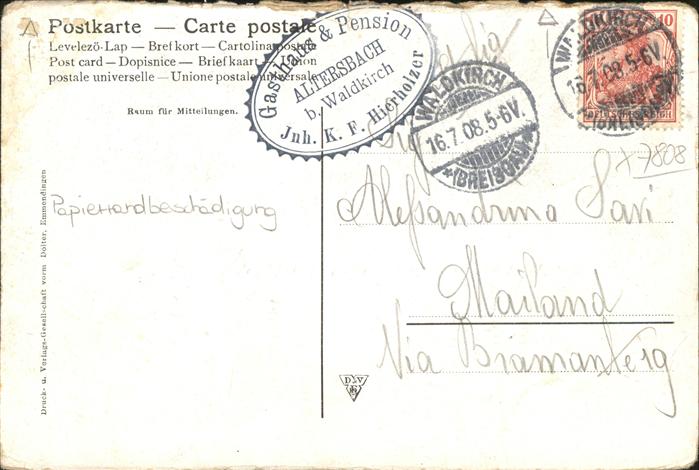 Postkarte — Carte postale
Levelező-Lap — Brefkort — Cartolina postale
Post card — Dopisnice — Briefkaart — Union
postale universelle — Unione postale universale
Raum für Mitteilungen.
Gasthaus & Pension
ALTERSBACH
b. Waldkirch
Jnh. K. F. Hierholzer
WALDKIRCH
16.7.08.5-6V.
*(BREISGAU)*
WALDKIRCH
16.7.08.5-6V.
*(BREISGAU)*
10
DEUTSCHES REICH
x7808
Papierrandbeschädigung
Alessandrina Savi
Mailand
Via Bramante 19
Druck- u. Verlags-Gesellschaft vorm Dölter, Emmendingen
D V
E